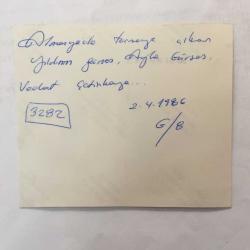 Almanyada turneye çıkan
Yıldırım Gürses, Ayla Gürses,
Vedat Çetinkaya...
2.4.1986
3282
G/8